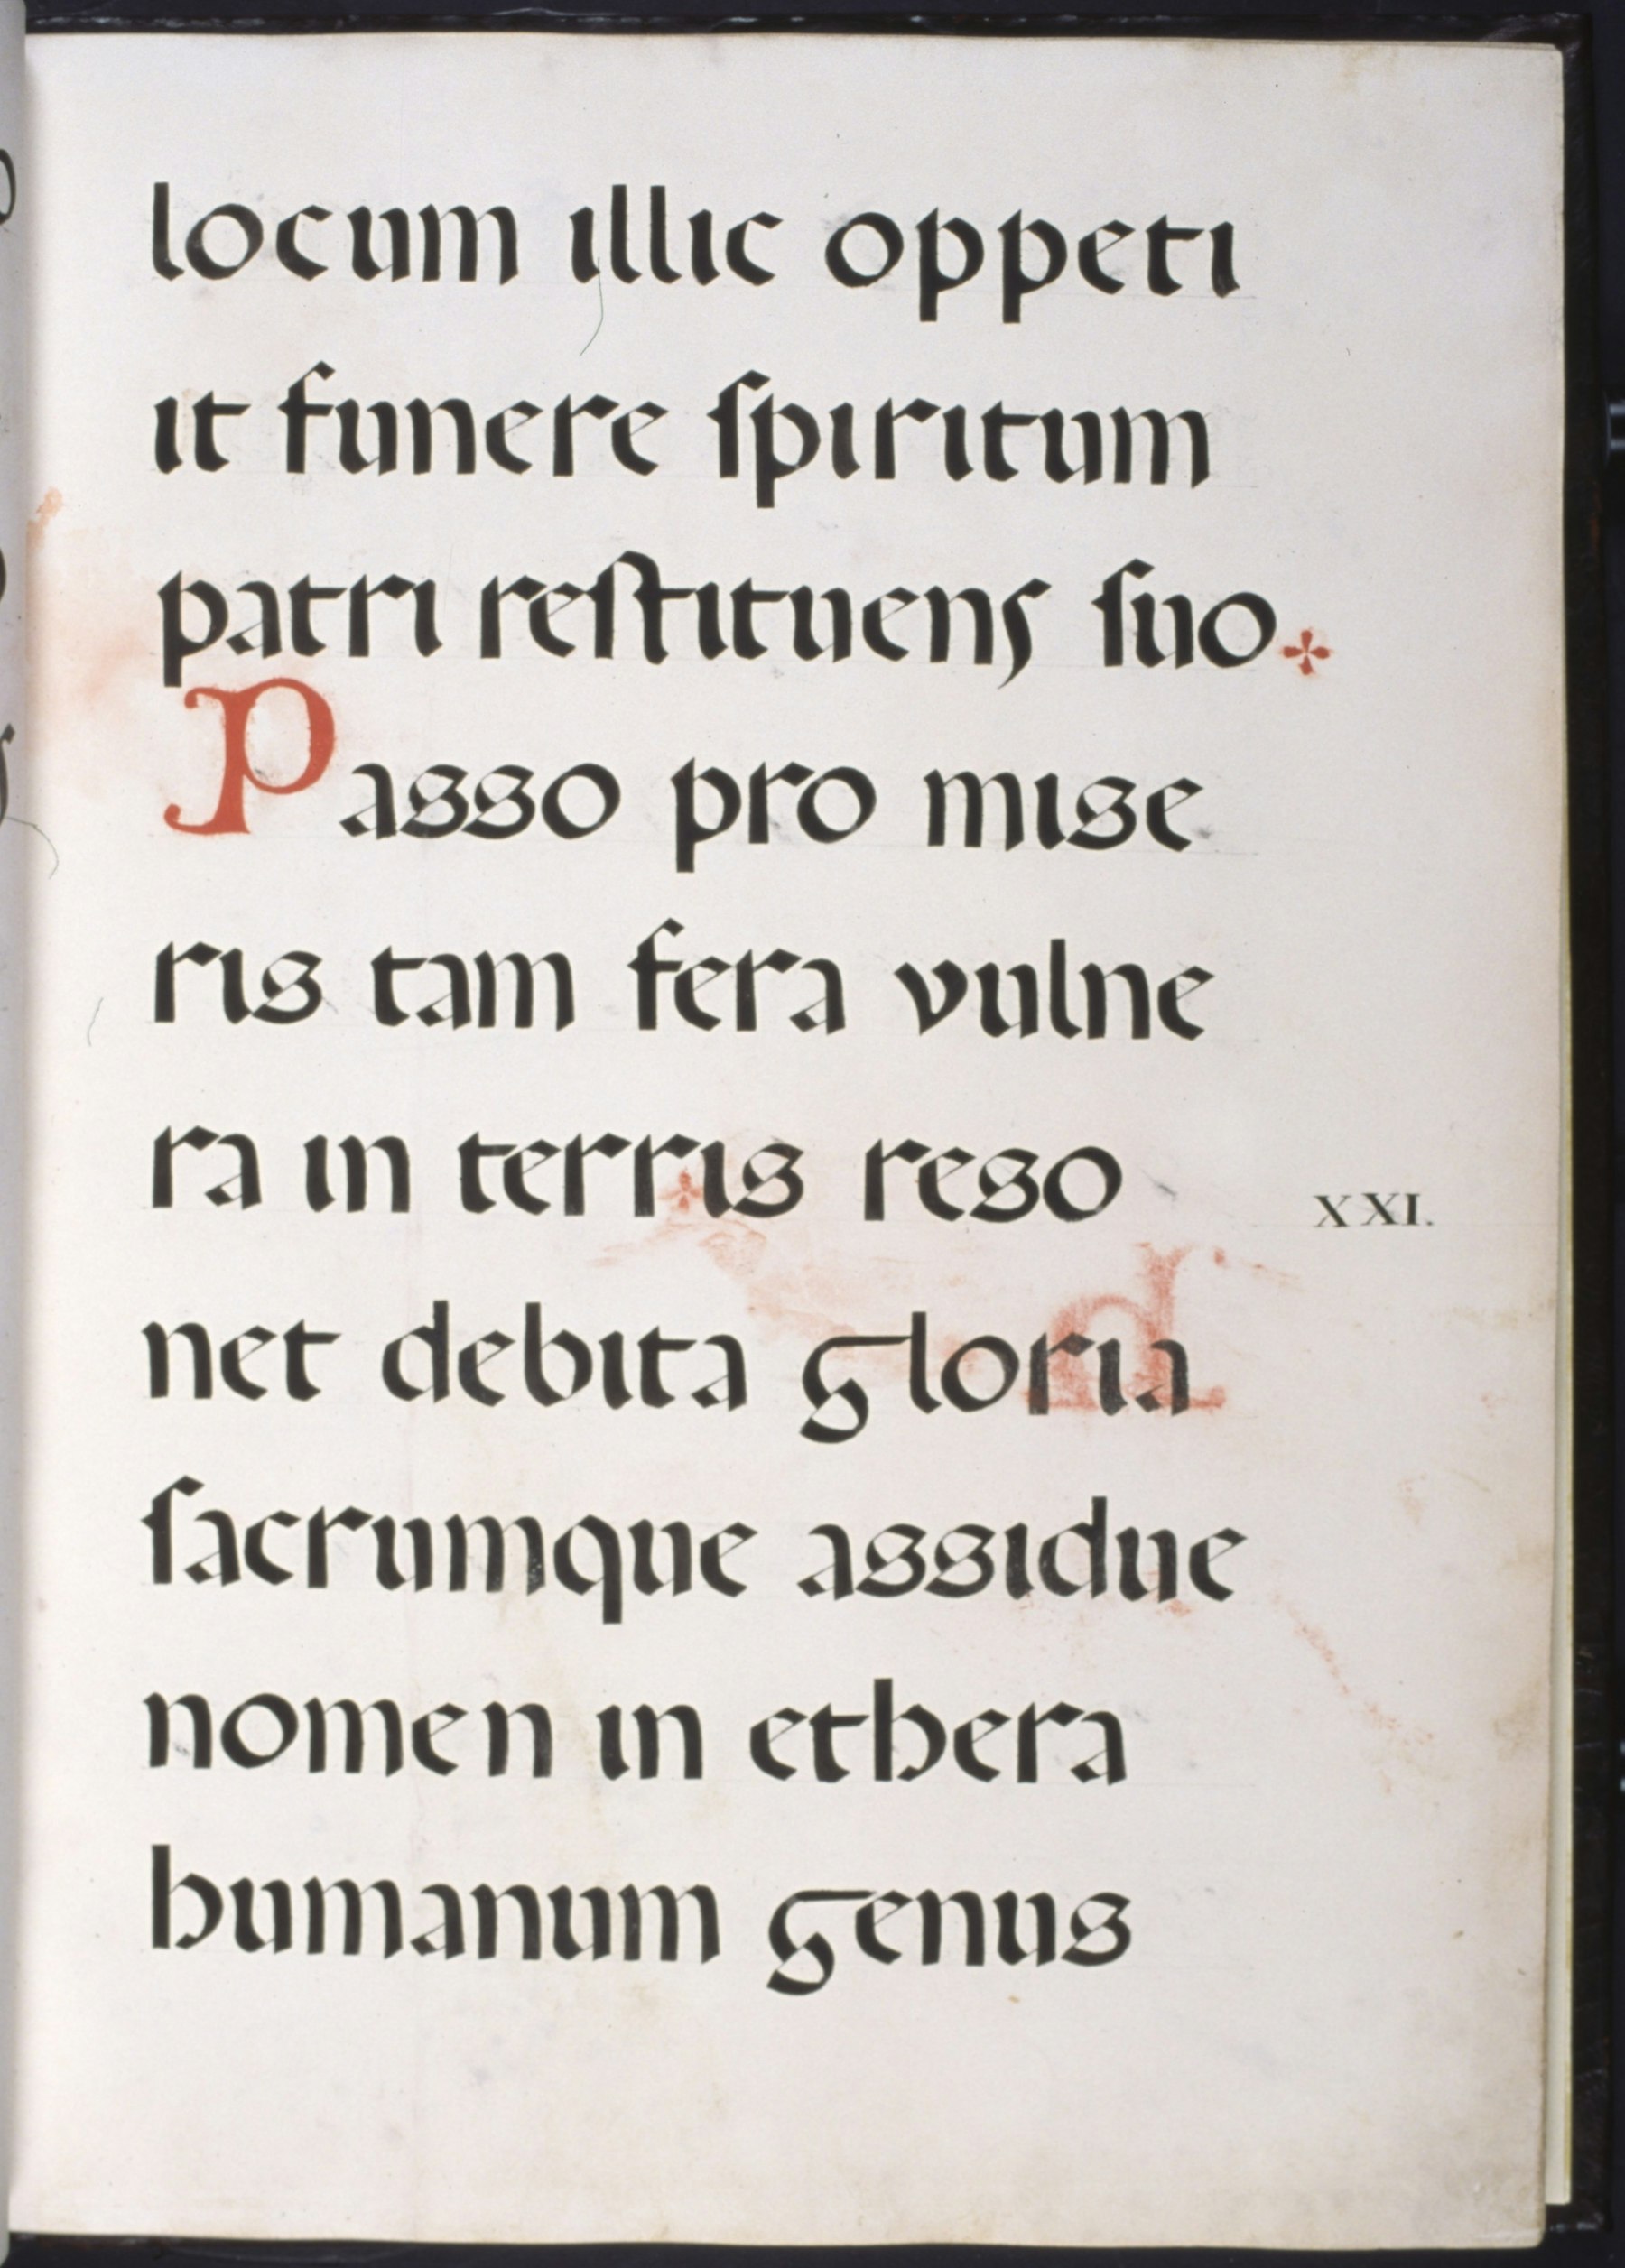 locum illic oppeti
it funere ſpiritum
patri reſtituens ſuo
Passo pro mise
ris tam fera vulne
ra in terris reso
XXI.
net debita gloria
ſacrumque assidue
nomen in ethera
humanum genus